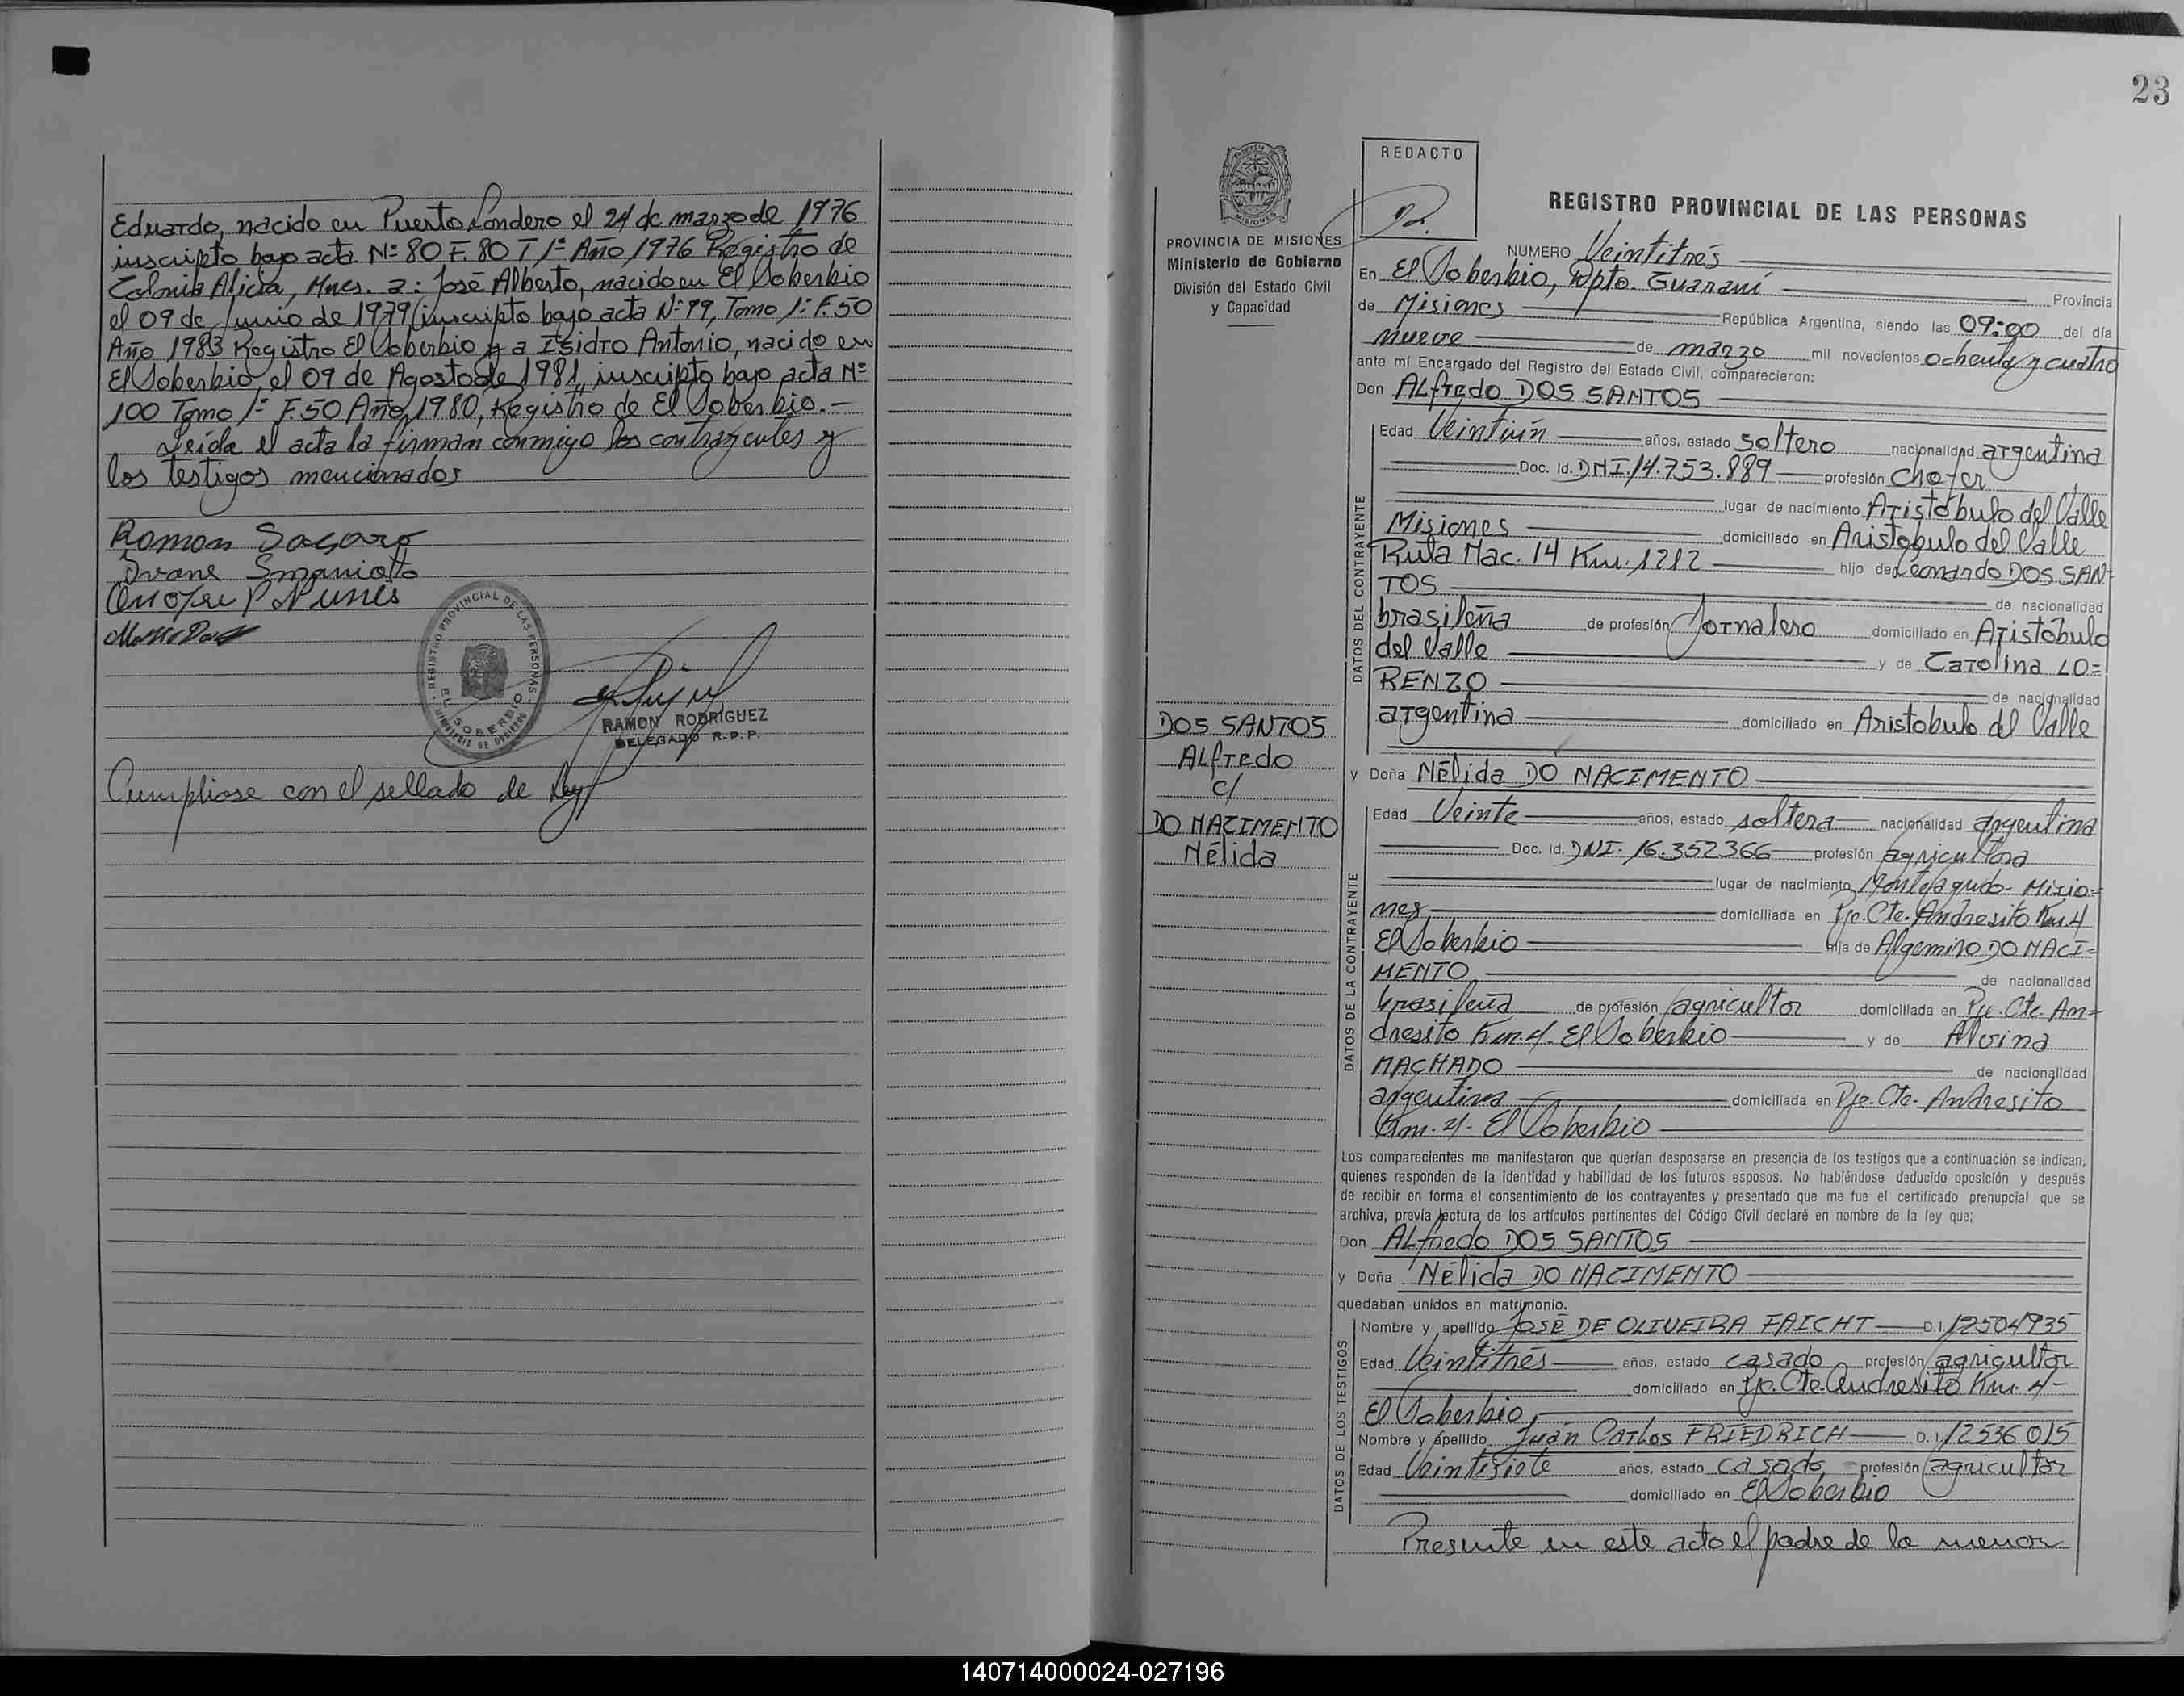 Eduardo, nacido en Puerto Londero el 24 de marzo de 1976
inscripto bajo acta Nº 80 F. 80 T 1º Año 1976 Registro de
Colonia Alicia, Mnes. a: José Alberto, nacido en El Soberbio
el 09 de Junio de 1979 (inscripto bajo acta Nº 99, Tomo 1º F. 50
Año 1983 Registro El Soberbio y a Isidro Antonio, nacido en
El Soberbio, el 09 de Agosto de 1981, inscripto bajo acta Nº
100 Tomo 1º F. 50 Año 1980, Registro de El Soberbio.-
Leída el acta la firman conmigo los contrayentes y
los testigos mencionados
Ivane Smaniotto
REGISTRO PROVINCIAL DE LAS PERSONAS
EL SOBERBIO
MINISTERIO DE GOBIERNO
RAMON RODRIGUEZ
DELEGADO R.P.P.
Cumpliose con el sellado de Ley
23
REDACTO
PROVINCIA DE MISIONES
Ministerio de Gobierno
División del Estado Civil
y Capacidad
REGISTRO PROVINCIAL DE LAS PERSONAS
NUMERO Veintitrés
En El Soberbio, Dpto. Guaraní Provincia
de Misiones República Argentina, siendo las 09:00 del día
nueve de marzo mil novecientos ochenta y cuatro
ante mí Encargado del Registro del Estado Civil, comparecieron:
Don ALfredo DOS SANTOS
DATOS DEL CONTRAYENTE
Edad Veintiún años, estado soltero nacionalidad argentina
Doc. Id. DNI. 14.753.889 profesión chofer
lugar de nacimiento Aristóbulo del Valle
Misiones domiciliado en Aristobulo del Valle
Ruta Nac. 14 Km. 1212 hijo de Leonardo DOS SAN-
TOS de nacionalidad
brasileña de profesión Jornalero domiciliado en Aristóbulo
del Valle y de Carolina LO=
RENZO de nacionalidad
argentina domiciliado en Aristobulo del Valle
DOS SANTOS
ALfredo
c/
DO NACIMENTO
Nélida
y Doña Nélida DO NACIMENTO
DATOS DE LA CONTRAYENTE
Edad Veinte años, estado soltera nacionalidad argentina
Doc. Id. DNI. 16.352366 profesión agricultora
lugar de nacimiento Monteagudo- Misio=
nes domiciliada en Pje. Cte. Andresito Km 4
El Soberbio hija de Algemiro DO NACI=
MENTO de nacionalidad
brasileña de profesión agricultor domiciliada en Pje. Cte. An=
dresito Km. 4- El Soberbio y de Alvina
MACHADO de nacionalidad
argentina domiciliada en Pje. Cte. Andresito
Km. 4- El Soberbio
Los comparecientes me manifestaron que querían desposarse en presencia de los testigos que a continuación se indican,
quienes responden de la identidad y habilidad de los futuros esposos. No habiéndose deducido oposición y después
de recibir en forma el consentimiento de los contrayentes y presentado que me fue el certificado prenupcial que se
archiva, previa lectura de los artículos pertinentes del Código Civil declaré en nombre de la ley que;
Don ALfredo DOS SANTOS
y Doña Nélida DO NACIMENTO
quedaban unidos en matrimonio.
DATOS DE LOS TESTIGOS
Nombre y apellido José DE OLIVEIRA FAICHT D.I. 12504935
Edad Veintitrés años, estado casado profesión agricultor
domiciliado en Pje. Cte. Andresito Km. 4-
El Soberbio,
Nombre y apellido Juán Carlos FRIEDRICH D.I. 12536015
Edad Veintisiete años, estado casado profesión agricultor
domiciliado en El Soberbio
Presente en este acto el padre de la menor
140714000024-027196